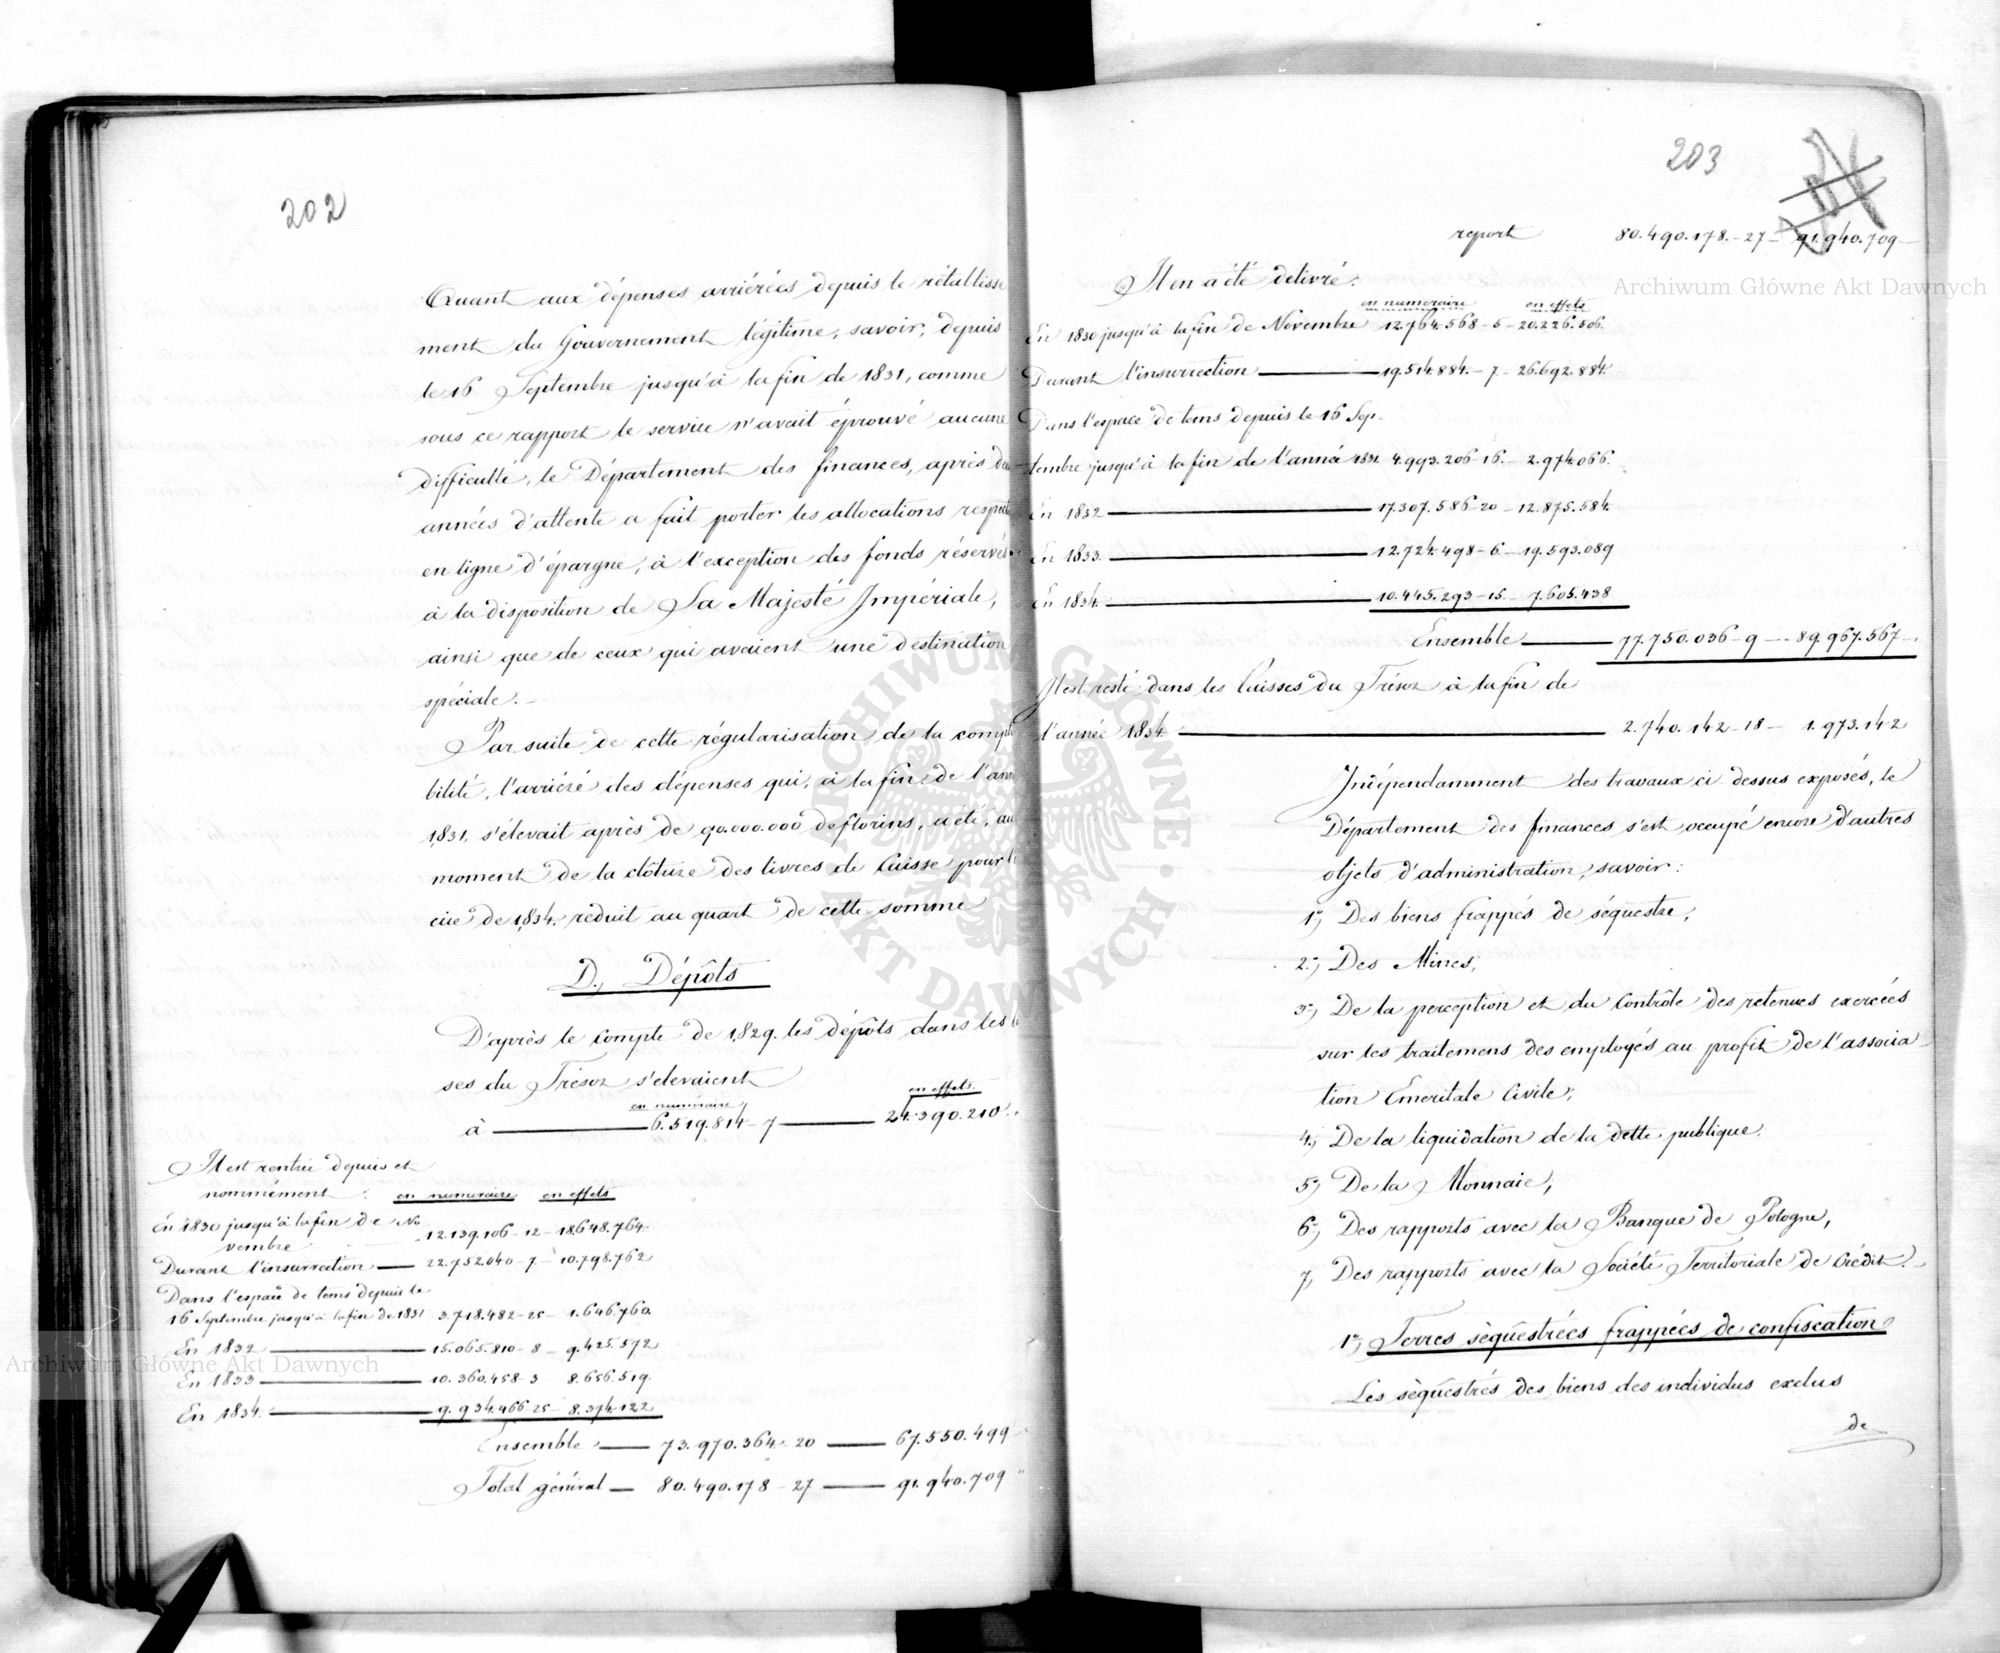 202
Quant aux dépenses arriérées depuis le rétablisse
ment du Gouvernement légitime, savoir, depuis
le 16 Septembre jusqu'à la fin de 1831, comme
sous ce rapport le service n'avait éprouvé aucune
difficulté, le Département des finances, après
années d'attente a fait porter les allocations
en ligne d'épargne, à l'exception des fonds réservés
à la disposition de Sa Majesté Impériale,
ainsi que de ceux qui avaient une destination
spéciale.
Par suite de cette régularisation de la
bilité, l'arriéré des dépenses qui, à la fin de
1831, s'élevait après de 90.000.000 de florins, a été, au
moment de la clôture des livres de Caisse pour
de 1834. réduit au quart de cette somme
D., Dépôts
D'après le Compte de 1829. les dépôts dans les
ses du Trésor s'elevaient
en numéraire en effets.
à 6.519.814 - 7 24.390.210.
Il est rentré depuis et
nommément : en numeraire en effets
En 1830 jusqu'à la fin de No
vembre 12.139.106 - 12 - 18.648.764.
Durant l'insurrection 22.752.040 - 7 - 10.798.762
Dans l'espace de tems depuis le
16 Septembre jusqu'à la fin de 1831 3.718.482 - 25 - 1.646.760.
En 1832 15.065.810 - 8 - 9.425.572
En 1833 10.360.458 - 3 8.656.519.
En 1834. 9.934.466 - 25 - 8.374.122
Ensemble 73.970.364. 20 67.550.499
Total général 80.490.178 - 27 91.940.709
203
report 80.490.178. - 27 - 91.940.709
Il en a été delivré.
en numeraire en effets
En 1830 jusqu'à la fin de Novembre 12.764.568 - 5 - 20.226.506.
Durant l'insurrection 19.514.884. - 7 - 26.692.884.
Dans l'espace de tems depuis le 16 Sep.
tembre jusqu'à la fin de l'année 1831 4.993.206 - 16. - 2.974.066.
En 1832 17.307.586 - 20 - 12.875.584.
En 1833. 12.724.498 - 6 - 19.593.089
En 1834. 10.445.293 - 15. - 7.605.438
Ensemble 77.750.036 - 9 - 89.967.567
Il est resté dans les Caisses du Trésor à la fin de
l'année 1834. 2.740.142 - 18 - 1.973.142
Indépendamment des travaux ci dessus exposés, le
Département des finances s'est occupé encore d'autres
objets d'administration, savoir :
1°, Des biens frappés de séquestre,
2°, Des Mines,
3°, De la perception et du Contrôle des retenues exercées
sur les traitemens des employés au profit de l'associa
tion Emeritale Civile,
4°, De la liquidation de la dette publique.
5°, De la Monnaie,
6°, Des rapports avec la Banque de Pologne,
7, Des rapports avec la Société Territoriale de Crédit.
1°, Terres sèquestrées frappées de confiscation
Les sèquestrés des biens des individus exclus
de
Archiwum Główne Akt Dawnych
Archiwum Główne Akt Dawnych
ARCHIWUM GŁÓWNE • AKT DAWNYCH •